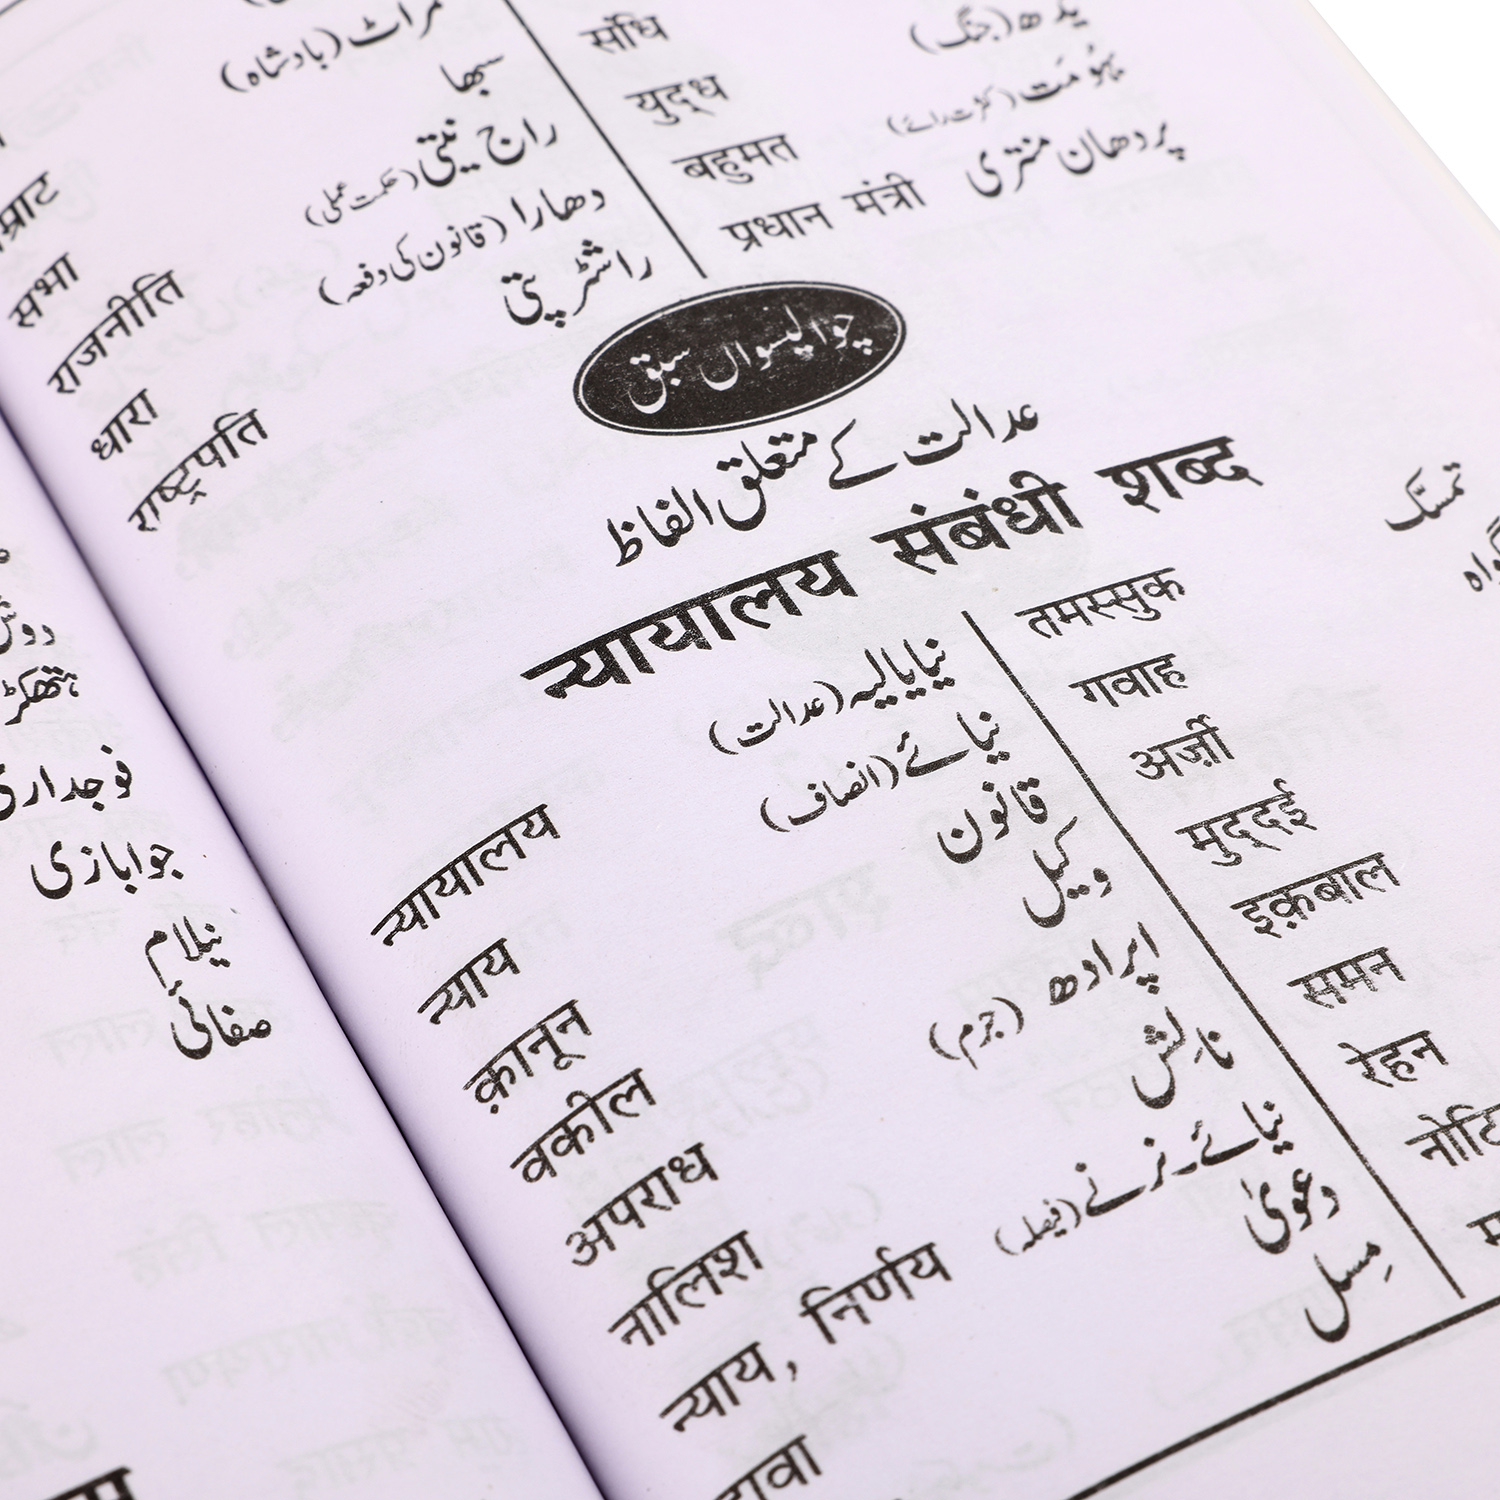 دوش
ہتھکڑ
فوجداری
جوابازی
نیلام
صفائی
سمراٹ (بادشاہ)
सभा سبھا
राजनीति راج نیتی (حکمت عملی)
धारा دھارا (قانون کی دفعہ)
राष्ट्रपति راشٹرپتی
संधि
युद्ध یدھ (جنگ)
बहुमत بہومت (کثرت رائے)
प्रधान मंत्री پردھان منتری
چوالیسواں سبق
عدالت کے متعلق الفاظ
न्यायालय संबंधी शब्द
न्यायालय نیایالیہ (عدالت)
न्याय نیائے (انصاف)
क़ानून قانون
वकील وکیل
अपराध اپرادھ (جرم)
नालिश نالش
न्याय, निर्णय نیائے۔نرنے (فیصلہ)
दावा دعویٰ
مِسل
तमस्सुक تمسّک
गवाह گواہ
अर्ज़ी
मुद्दई
इक़बाल
समन
रेहन
नोटि